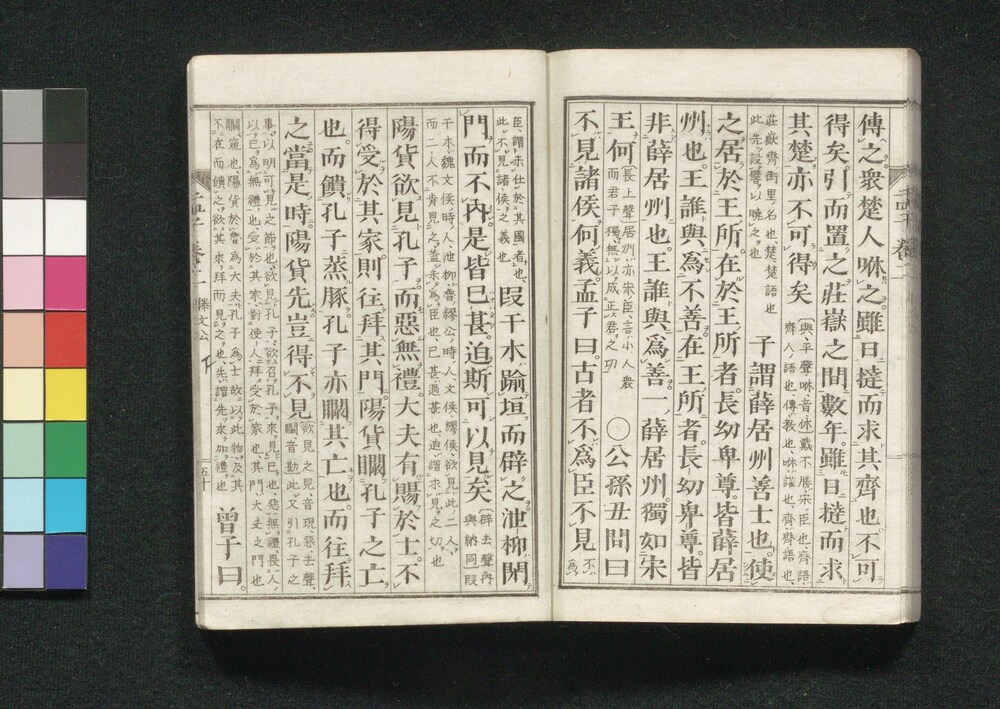 傳之衆楚人咻之雖日撻而求其齊也不可
得矣引而置之莊嶽之間數年雖日撻而求
其楚亦不可得矣
與平聲咻音休戴不勝宋臣也齊語
齊人語也傳教也咻讙也齊齊語也
莊嶽齊街里名也楚楚語也
此先設譬以曉之也
子謂薛居州善士也使
之居於王所在於王所者長幼卑尊皆薛居
州也王誰與爲不善在王所者長幼卑尊皆
非薛居州也王誰與爲善一薛居州獨如宋
王何
長上聲居州亦宋臣言小人衆
而君子獨無以成正君之功
〇公孫丑問曰
不見諸侯何義孟子曰古者不爲臣不見
不爲
臣謂未仕於其國者也
此不見諸侯之義也
段干木踰垣而辟之泄柳閉
門而不內是皆已甚迫斯可以見矣
辟去聲內
與納同段
干木魏文侯時人泄柳魯繆公時人文侯繆侯欲見此二人
而二人不肯見之蓋未爲臣也已甚過甚也迫謂求見之切也
陽貨欲見孔子而惡無禮大夫有賜於士不
得受於其家則往拜其門陽貨矙孔子之亡
也而饋孔子蒸豚孔子亦矙其亡也而往拜
之當是時陽貨先豈得不見
欲見之見音現惡去聲
矙音勘此又引孔子之
事以明可見之節也欲見孔子欲召孔子來見己也惡無禮畏人
以己爲無禮也受於其家對使人拜受於家也其門大夫之門也
矙窺也陽貨於魯爲大夫孔子爲士故以此物及其
不在而饋之欲其來拜而見之也先謂先來加禮也
曾子曰
孟子 卷二 滕文公 五十